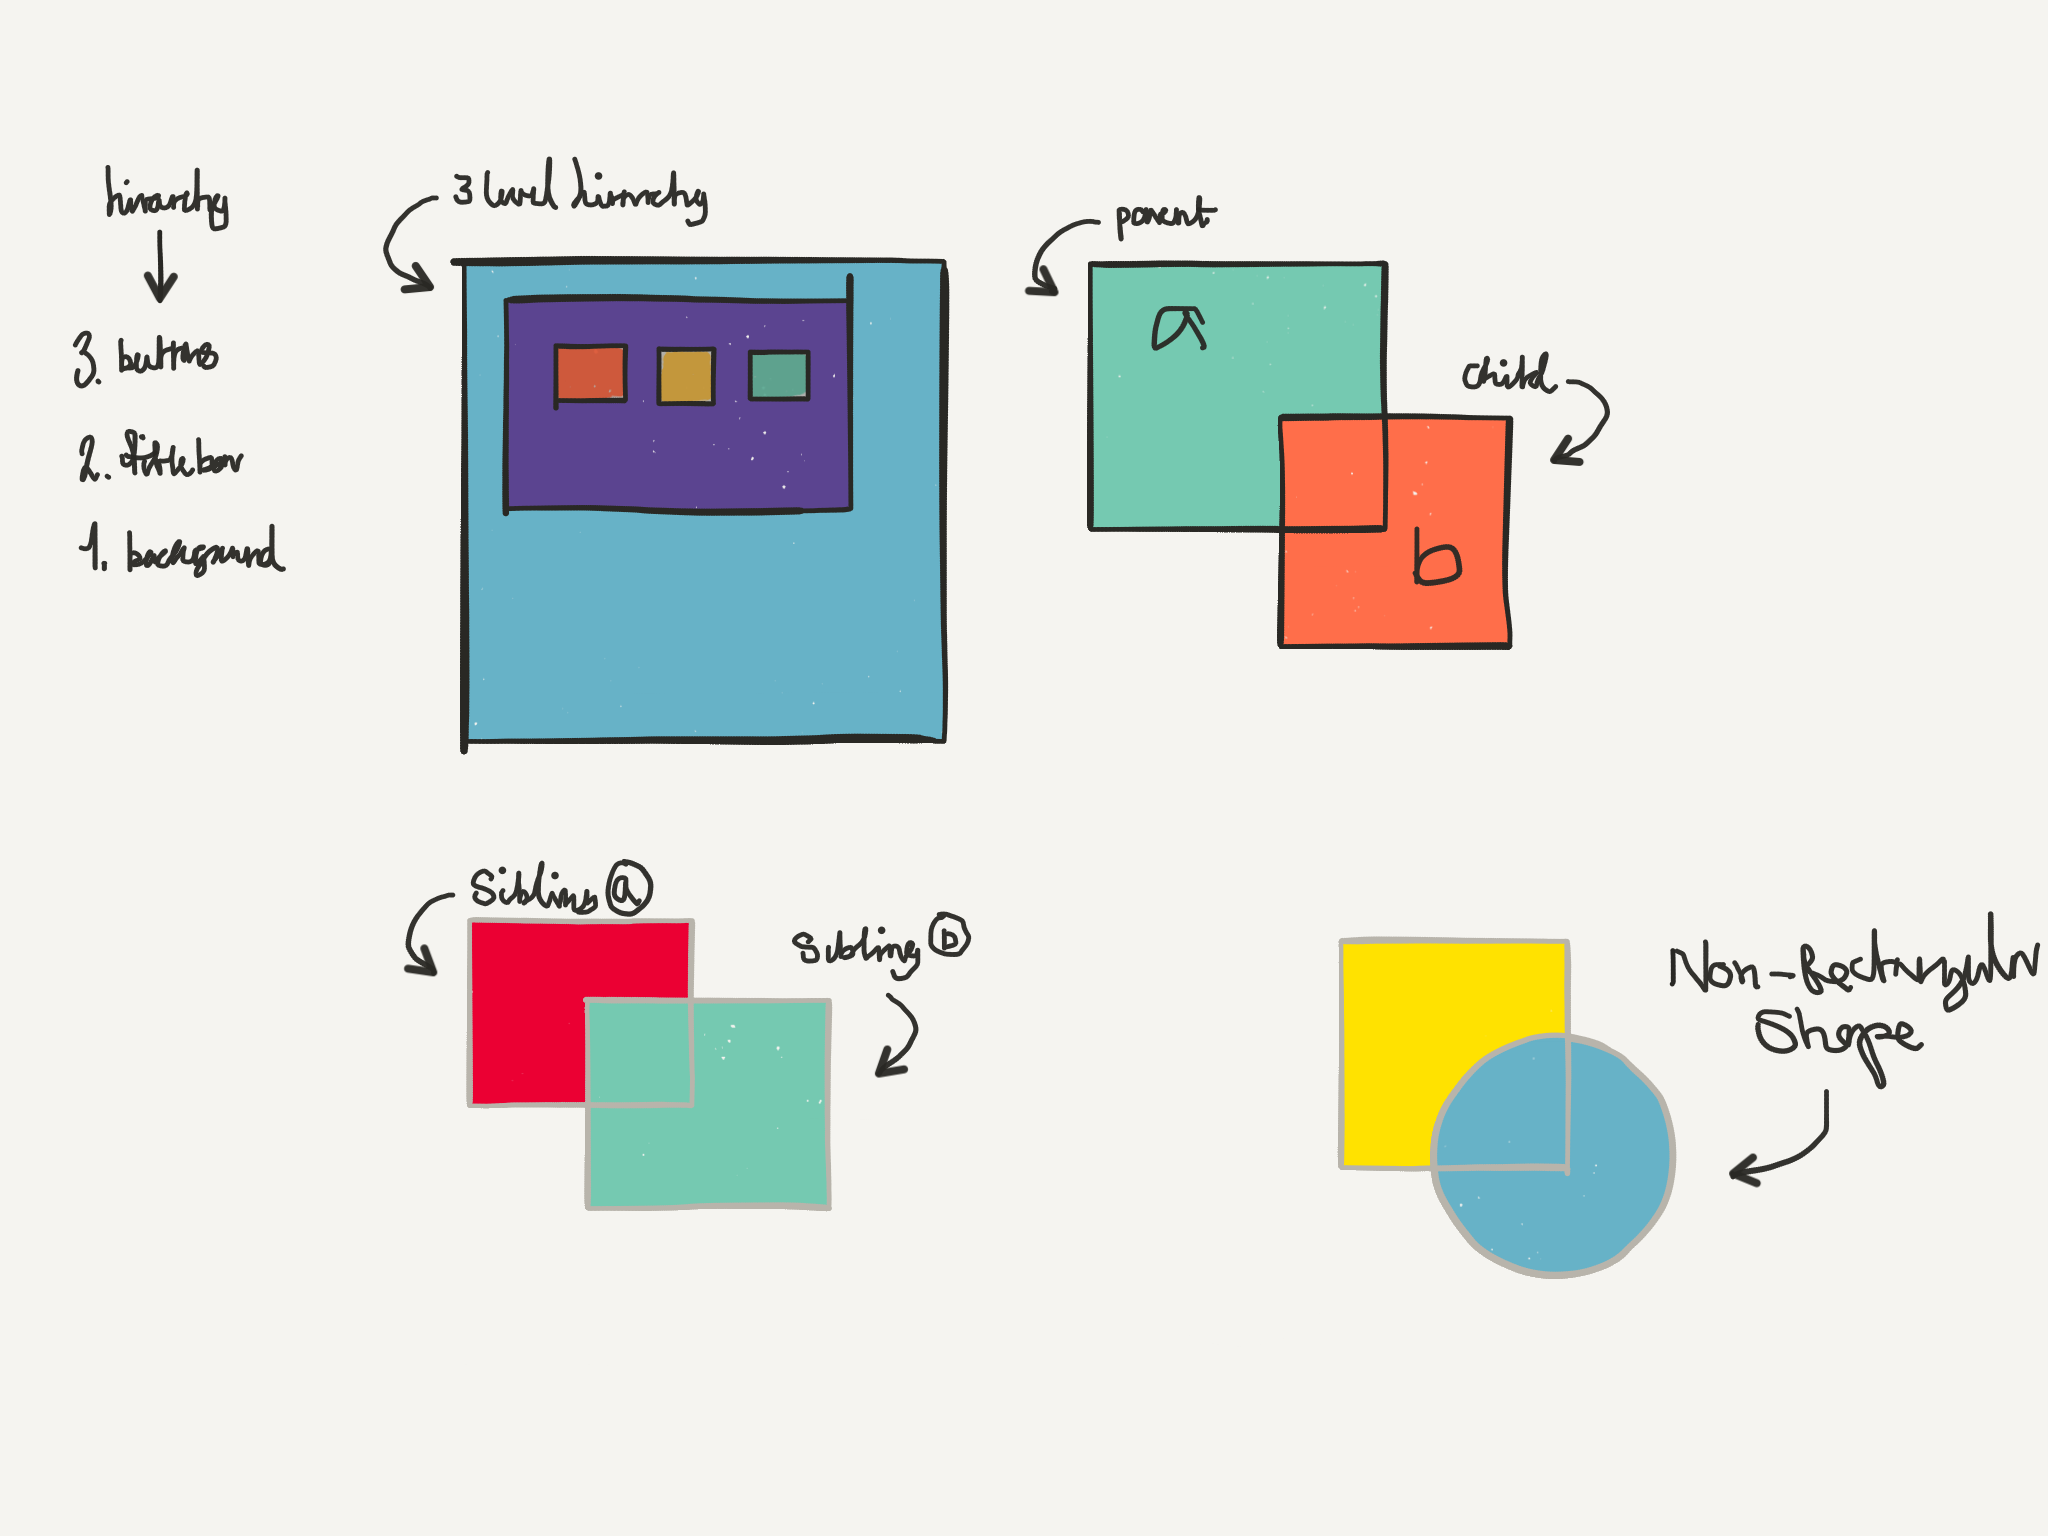 hirarchy
3. buttons
2. titlebar
1. background
3 level hirarchy
parent
a
child
b
Sibling a
Subling b
Non-Rectangular
Shape